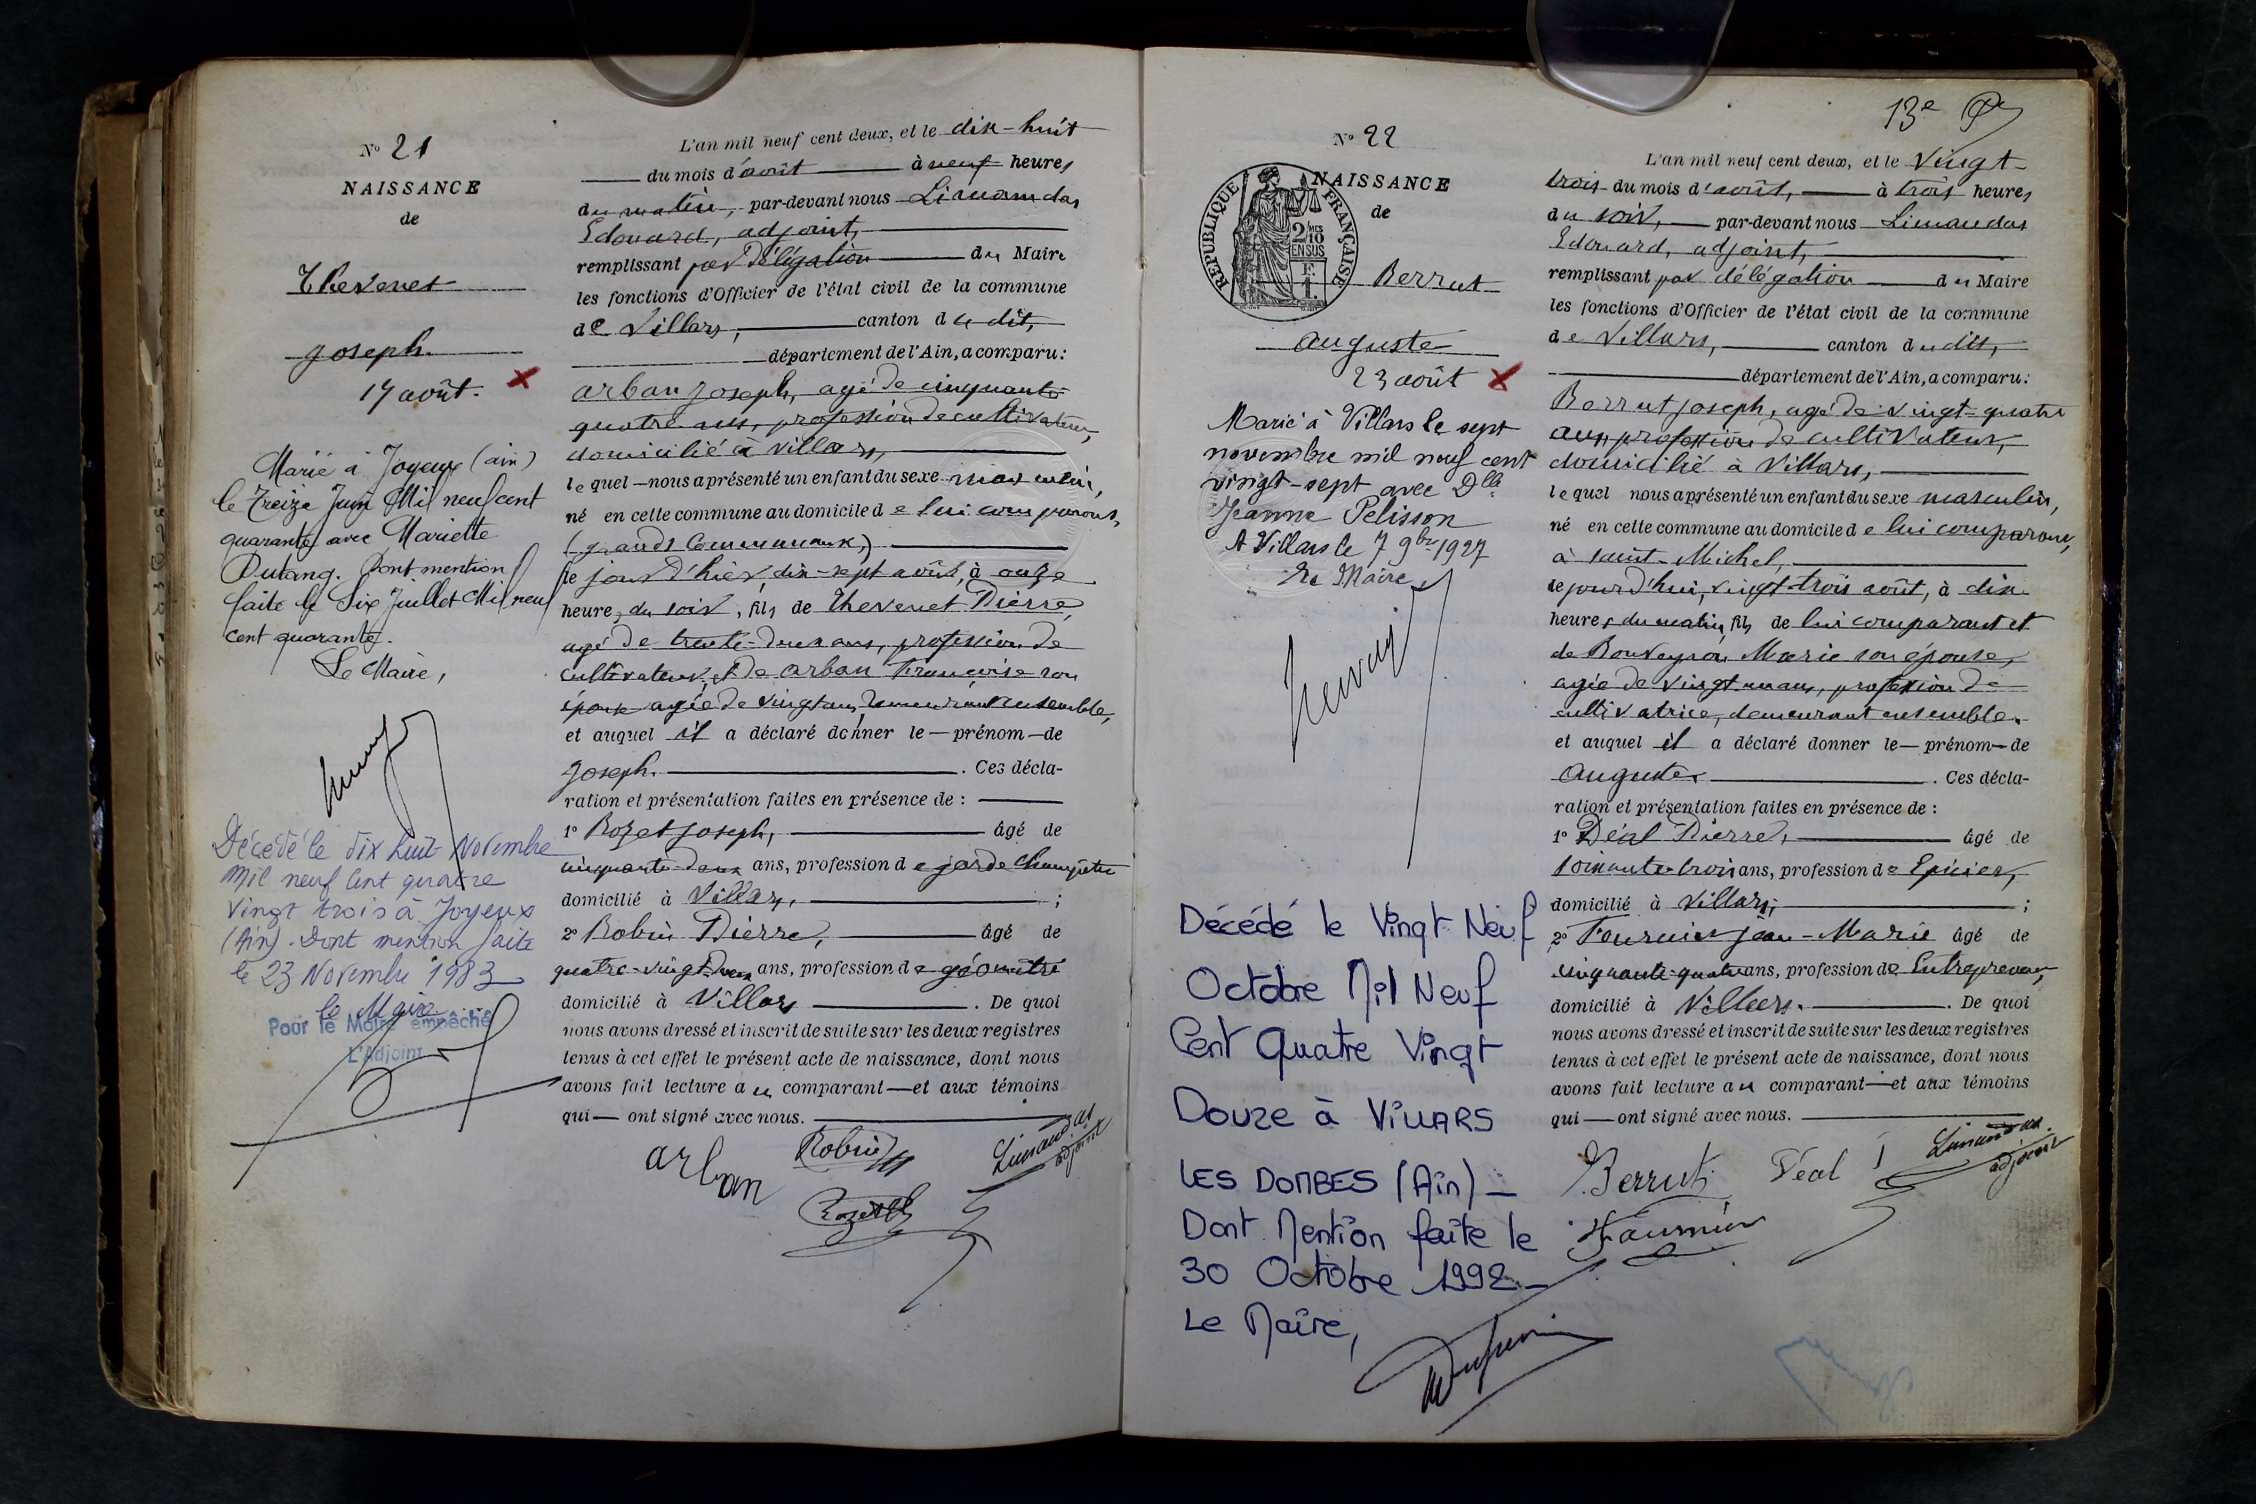 N° 21
NAISSANCE
de
Thevenet
Joseph.
17 août.
Marié à Joyeux (ain)
le Treize Juin Mil neuf cent
quarante avec Mariette
Dutang. Dont mention
faite le Six Juillet Mil neuf
cent quarante.
Le Maire,
Décédé le dix huit Novembre
mil neuf cent quatre
vingt trois à Joyeux
(Ain). Dont mention faite
le 23 Novembre 1983
le Maire
Pour le Maire empêché
L'Adjoint
L'an mil neuf cent deux, et le dix-huit
du mois d'août à neuf heures
du matin, par-devant nous Limandas
Edouard, adjoint,
remplissant par délégation du Maire
les fonctions d'Officier de l'état civil de la commune
de Villars, canton du dit,
département de l'Ain, a comparu:
arban Joseph, agé de cinquante
quatre ans, profession de cultivateur,
domicilié à Villars,
lequel nous a présenté un enfant du sexe masculin,
né en cette commune au domicile de lui comparant,
(grands Communaux,)
le jour d'hier, dix-sept août, à onze
heures du soir, fils de Thevenet Pierre,
agé de trente-deux ans, profession de
cultivateur, et de arban Françoise son
épouse agée de vingt ans, demeurant ensemble,
et auquel il a déclaré donner le prénom de
Joseph. . Ces décla-
ration et présentation faites en présence de :
1° Rozet Joseph, âgé de
cinquante-deux ans, profession de garde champêtre
domicilié à Villars, ;
2° Robin Pierre, âgé de
quatre-vingt-deux ans, profession de géomètre
domicilié à Villars . De quoi
nous avons dressé et inscrit de suite sur les deux registres
tenus à cet effet le présent acte de naissance, dont nous
avons fait lecture au comparant et aux témoins
qui ont signé avec nous.
arban Robin Limandas
adjoint
Rozet
13e
N° 22
NAISSANCE
de
RÉPUBLIQUE FRANÇAISE
2/10 MES
EN SUS
Berrut
auguste
23 août
Marié à Villars le sept
novembre mil neuf cent
vingt-sept avec Dlle
Jeanne Pelisson
A Villars le 7 9bre 1927
Le Maire
Décédé le Vingt Neuf
Octobre Mil Neuf
Cent Quatre Vingt
Douze à VILLARS
LES DOMBES (Ain) _
Dont Mention faite le
30 Octobre 1992 _
Le Maire,
L'an mil neuf cent deux, et le vingt-
trois du mois d'août, à trois heures
du soir, par-devant nous Limandas
Edouard, adjoint,
remplissant par délégation du Maire
les fonctions d'Officier de l'état civil de la commune
de Villars, canton du dit,
département de l'Ain, a comparu:
Berrut Joseph, agé de vingt-quatre
ans, profession de cultivateur,
domicilié à Villars,
lequel nous a présenté un enfant du sexe masculin,
né en cette commune au domicile de lui comparant,
à Saint-Michel,
ce jour d'hui, vingt-trois août, à dix
heures du matin, fils de lui comparant et
de Bouveyron Marie son épouse,
agée de vingt un ans, profession de
cultivatrice, demeurant ensemble.
et auquel il a déclaré donner le prénom de
Auguste . Ces décla-
ration et présentation faites en présence de :
1° Déal Pierre, âgé de
soixante-trois ans, profession de Epicier,
domicilié à Villars, ;
2° Fournier Jean-Marie âgé de
cinquante-quatre ans, profession de Entrepreneur,
domicilié à Villars. . De quoi
nous avons dressé et inscrit de suite sur les deux registres
tenus à cet effet le présent acte de naissance, dont nous
avons fait lecture au comparant et aux témoins
qui ont signé avec nous.
Berrut Déal Limandas
adjoint
Fournier